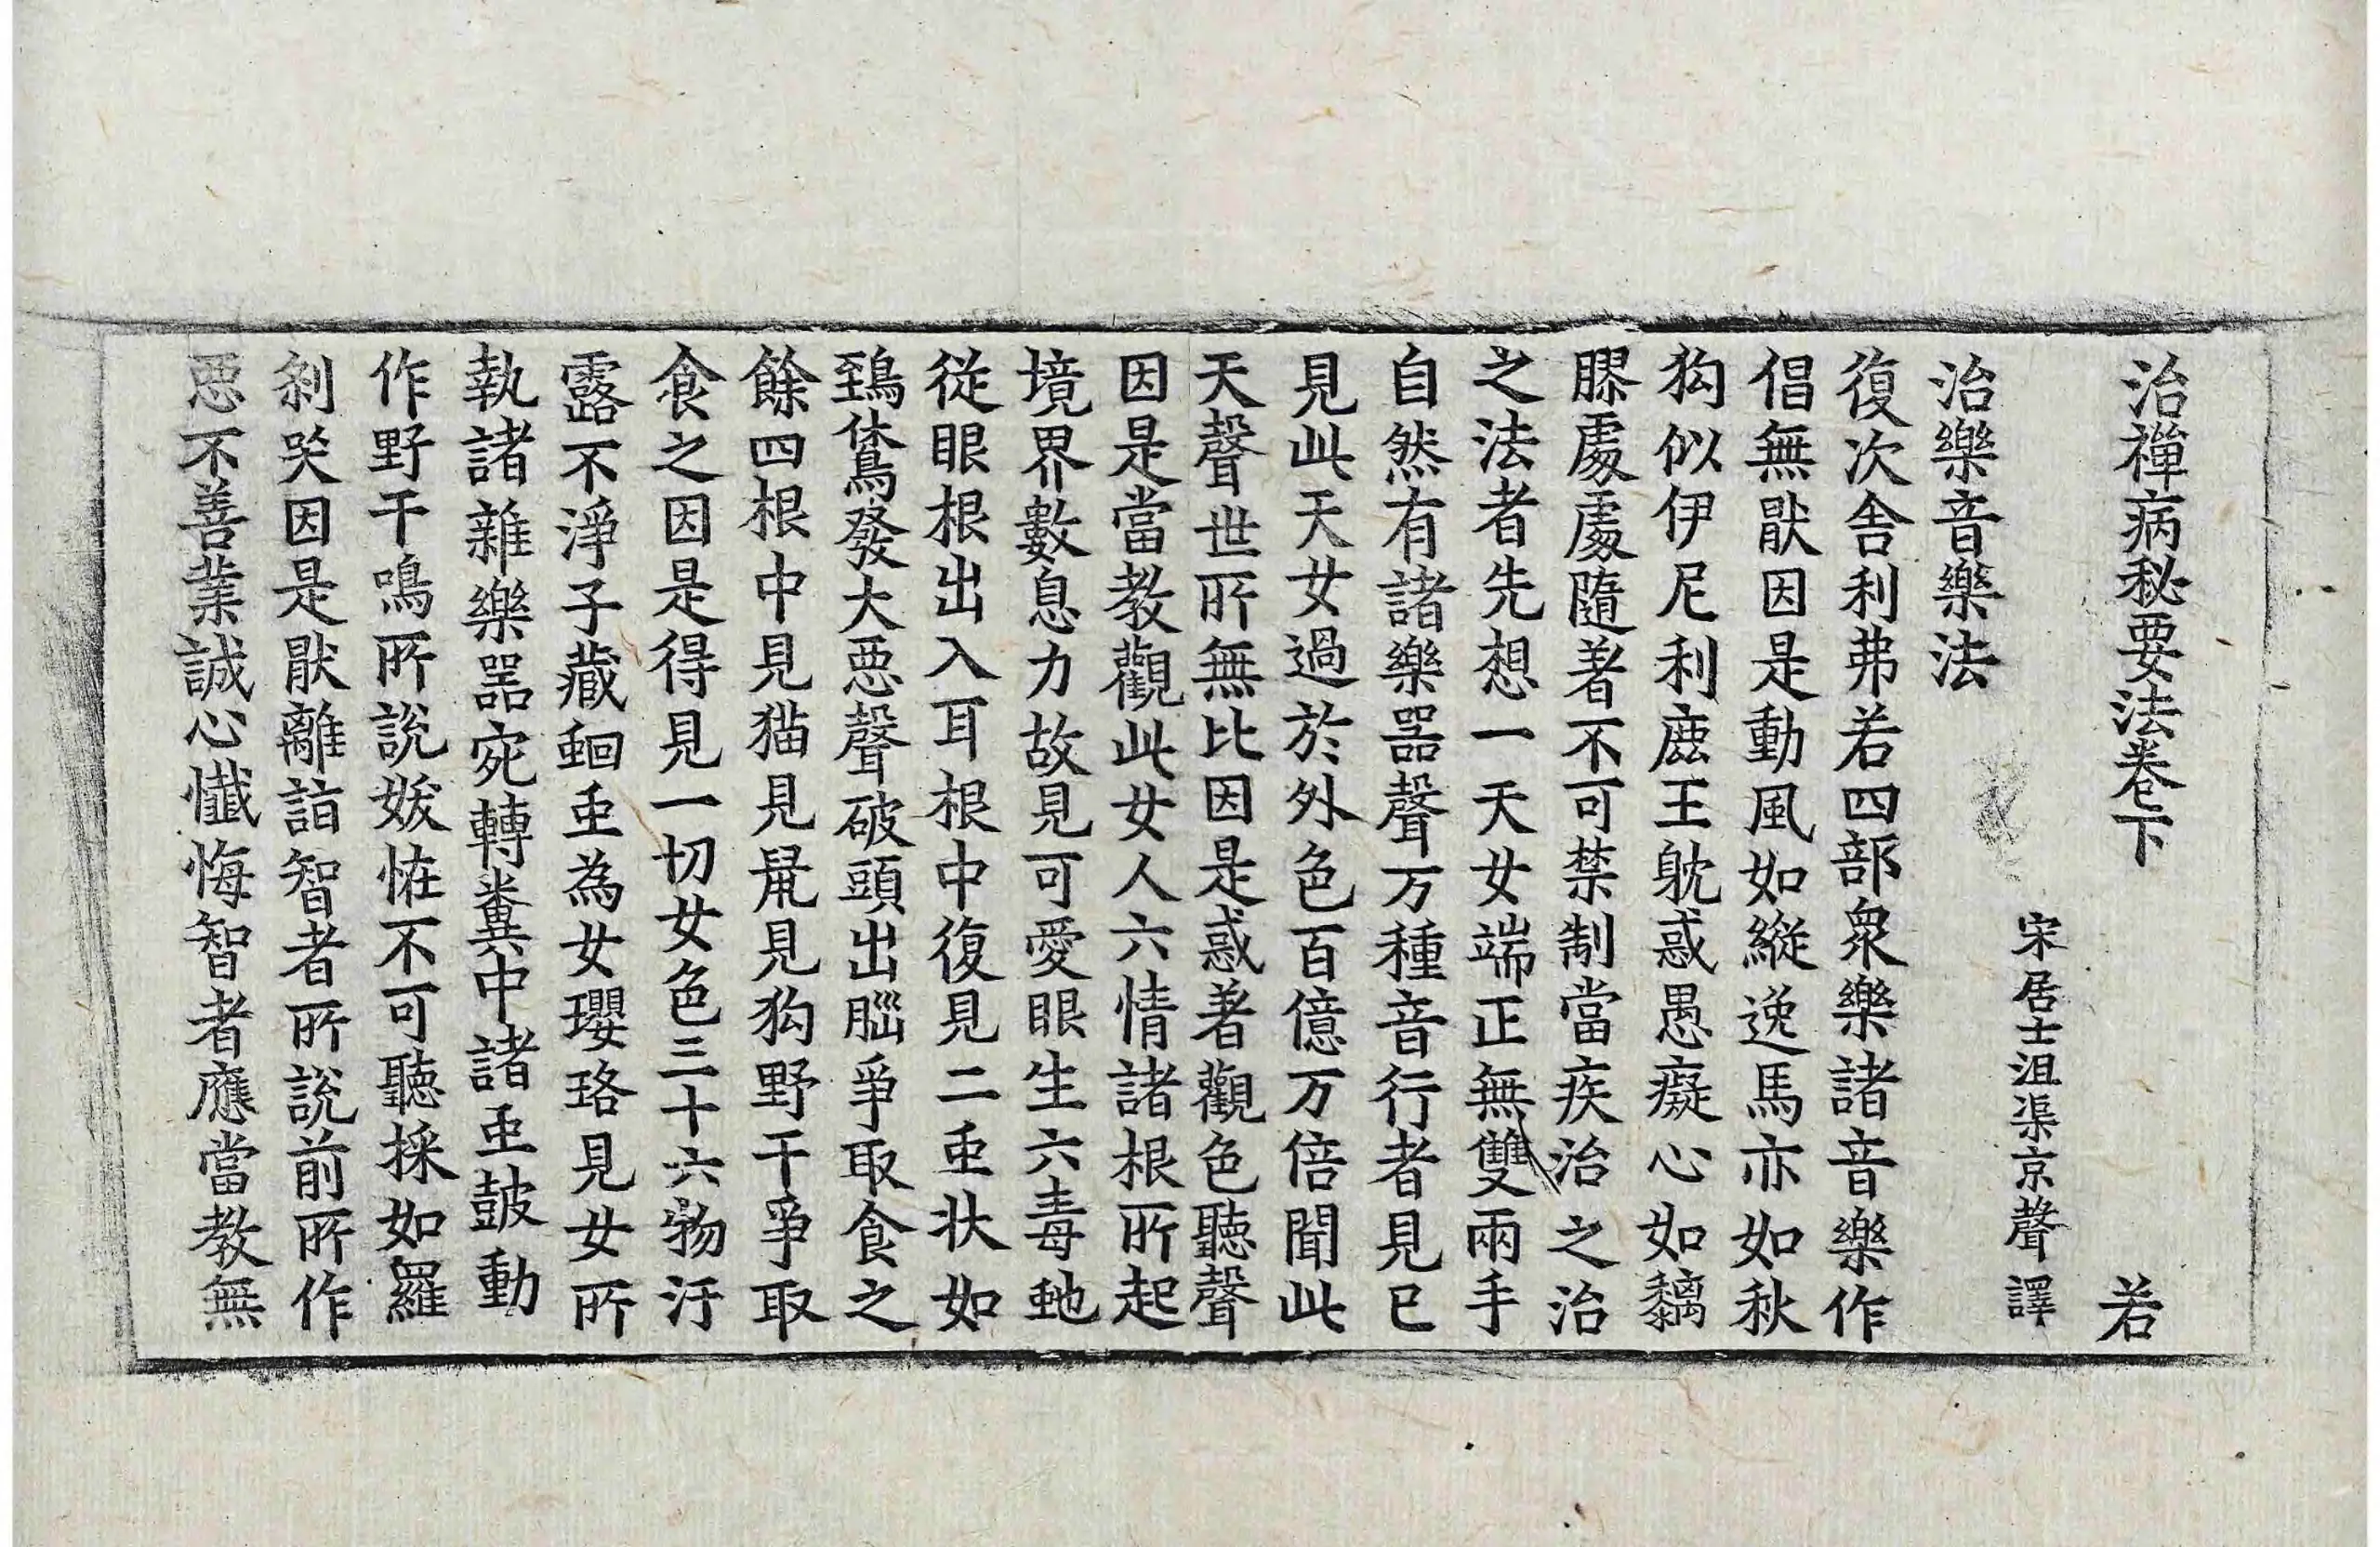 治禪病秘要法卷下 若
宋居士沮渠京聲譯
治樂音樂法
復次舍利弗若四部衆樂諸音樂作
倡無猒因是動風如縱逸馬亦如秋
狗似伊尼利鹿王躭惑愚癡心如黐
膠處處隨著不可禁制當疾治之治
之法者先想一天女端正無雙兩手
自然有諸樂器聲万種音行者見已
見此天女過於外色百億万倍聞此
天聲世所無比因是惑著觀色聽聲
因是當教觀此女人六情諸根所起
境界數息力故見可愛眼生六毒虵
從眼根出入耳根中復見二䖝状如
鵄鵂發大惡聲破頭出腦爭取食之
餘四根中見猫見鼠見狗野干爭取
食之因是得見一切女色三十六物汙
露不淨子藏蛔䖝為女瓔珞見女所
執諸雜樂器宛轉糞中諸䖝鼓動
作野干鳴所說妭恠不可聽採如羅
剎哭因是猒離詣智者所說前所作
惡不善業誠心懺悔智者應當教無